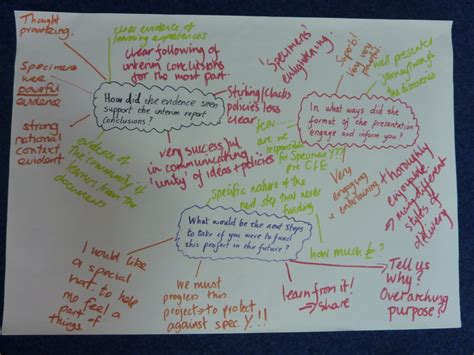 Thought
provoking.
clear evidence of
learning experiences
clear following of
interim conclusions
for the most part.
Specimens
were
powerful
evidence
strong
national
context
evident
How did the evidence seen
support the interim report
conclusions?
clarity
policies less
clear
'Specimens'
enlightening.
Superb!
Very
powerful.
well presented
journey through
the discoveries
In what ways did the
format of the presentation
engage and inform you?
few
are we
responsible
for Specimen Y???
pre
very successful
in communicating
'unity' of ideas + policies
evidence of
the community of
learners from the
documents
specific nature of the
next step that need
funding
Very
engaging
+
entertaining
thoroughly
enjoyable
using different
styles of
delivery
What would be the next steps
to take if you were to fund
this project in the future?
how much £?
I would like
a special
hat to help
me feel a
part of
things
We must
progress this
project to protect
against spec. Y.!!
learn from it!
→ share
Tell us
Why?
Overarching
purpose?